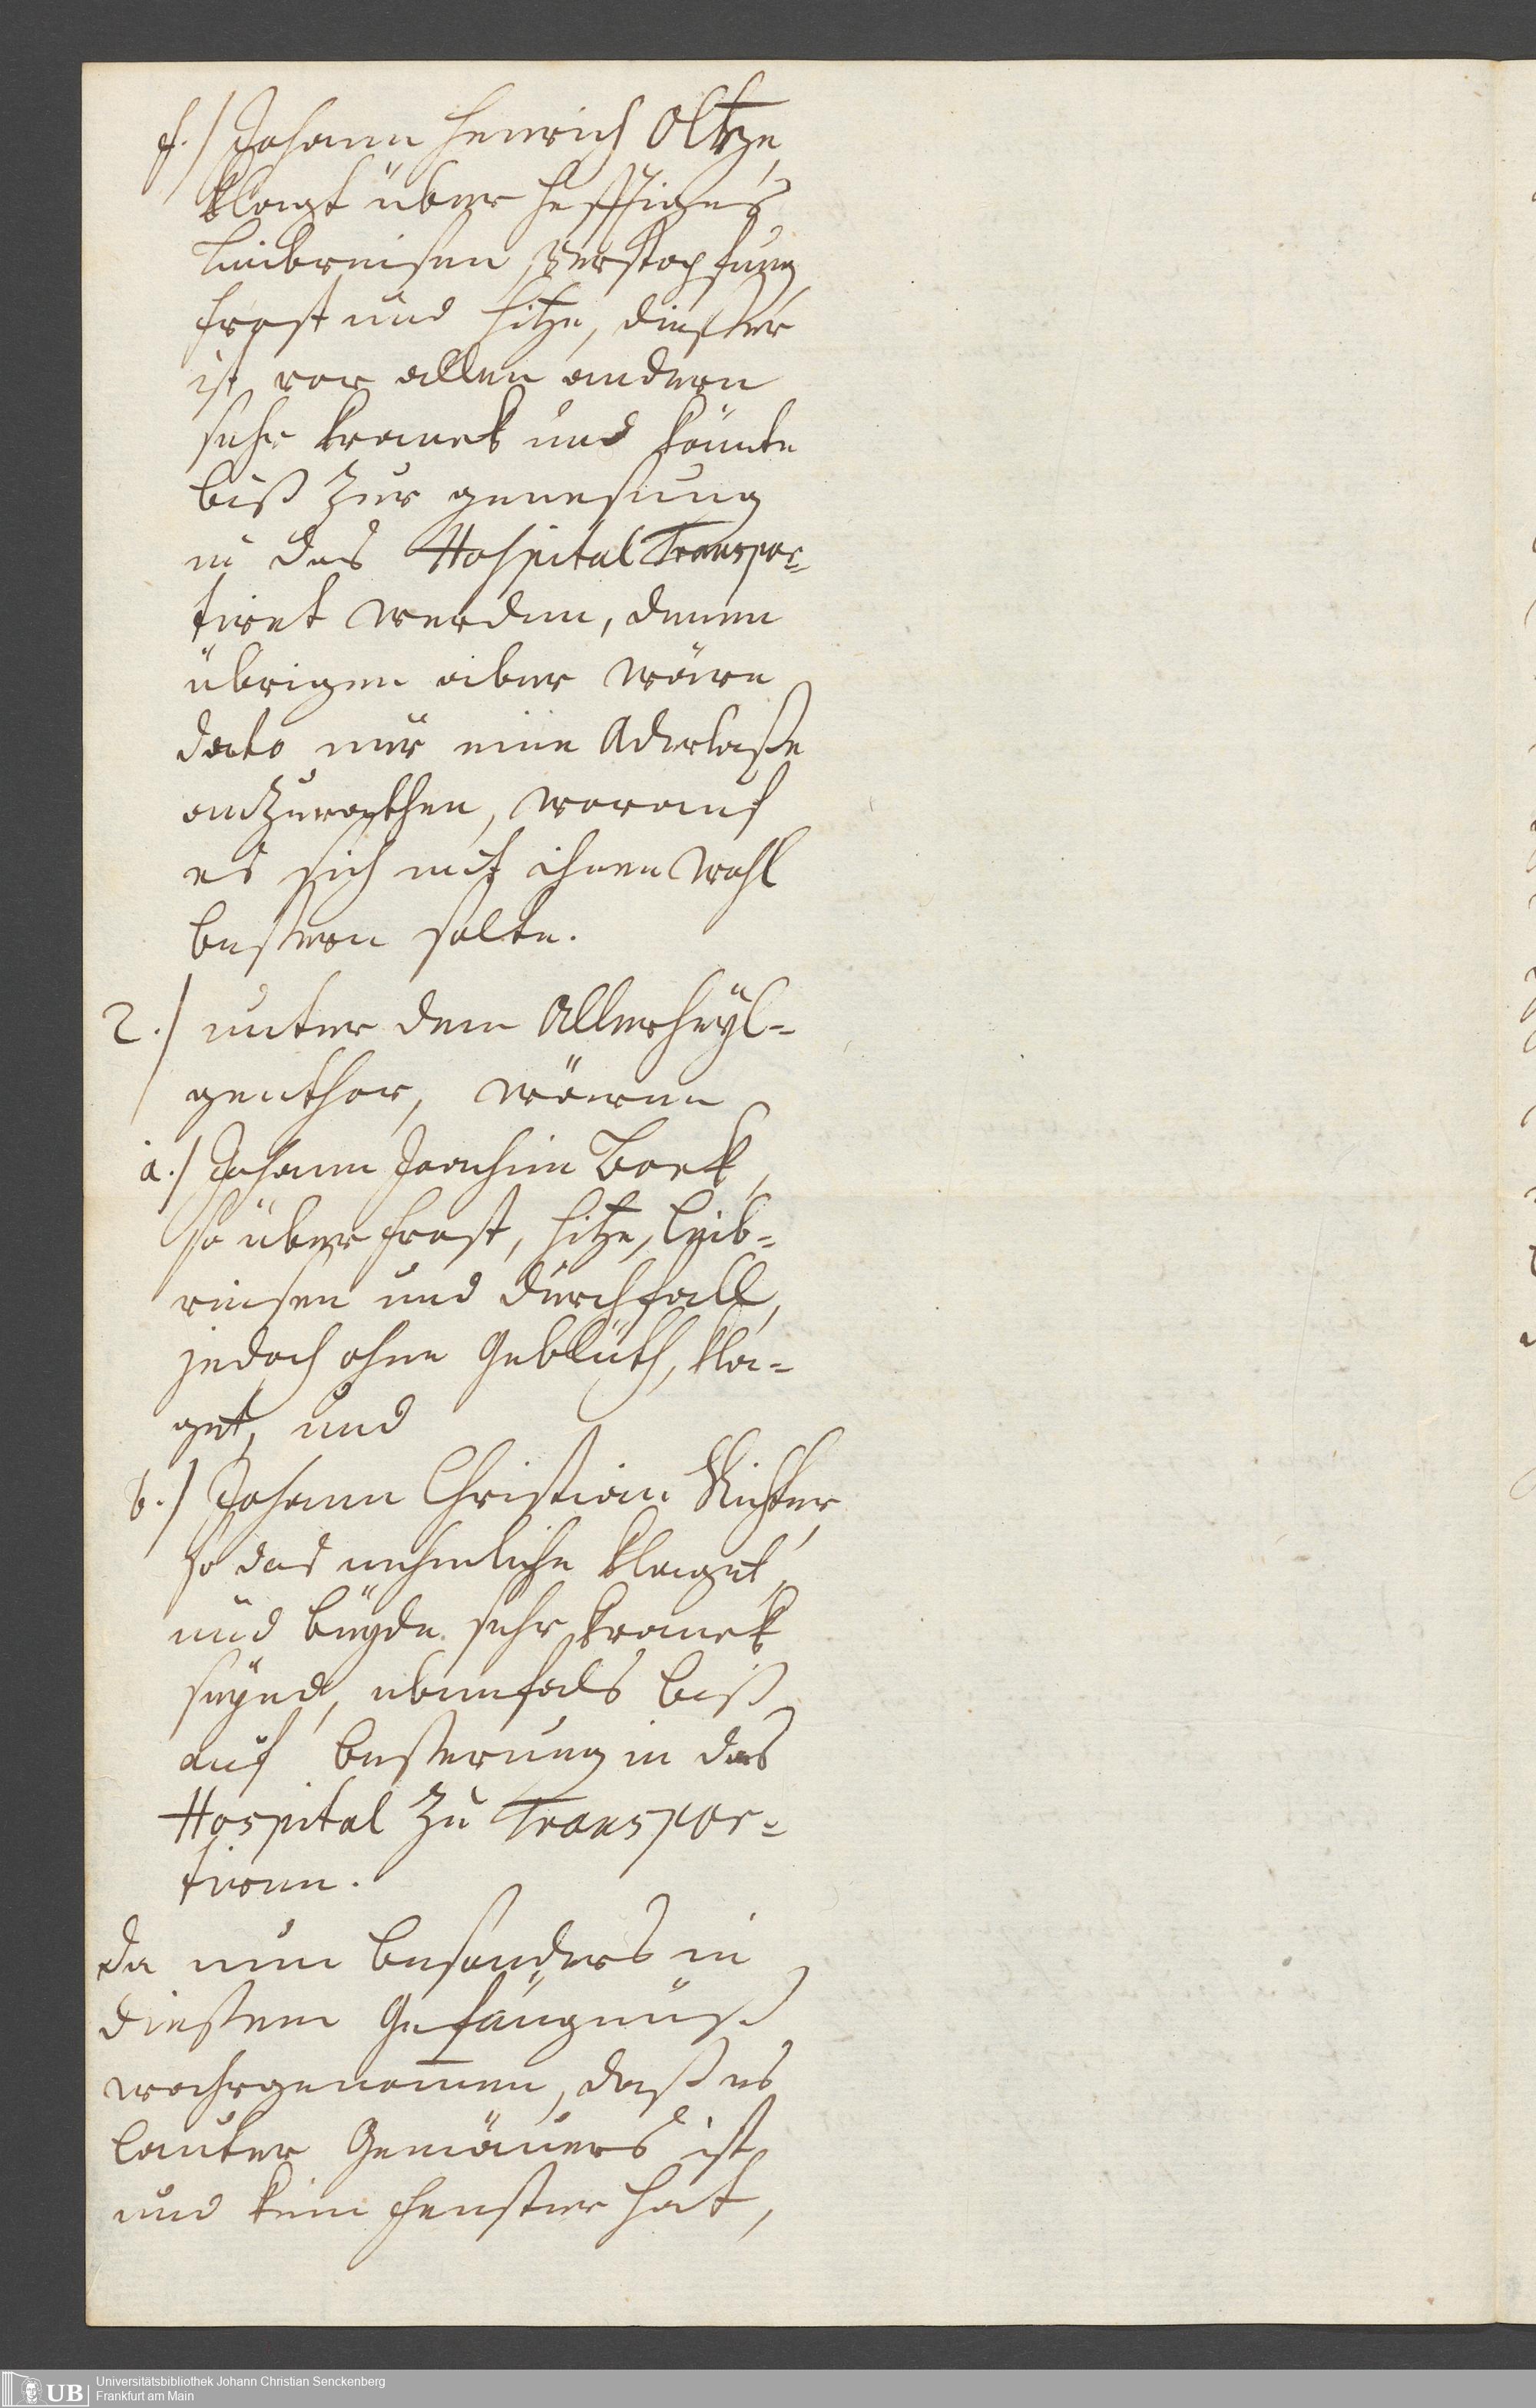 f.) Johann Henrich Oltze,
klagt über hefftiges
Leibreisen, Verstopfung,
Frost und Hitze, dießer
ist vor allen andern
sehr kranck und könnte
biß zur genesung
in das Hospital Transpor-
tiret werden, denen
übrigen aber wäre
dato nur eine Aderlaße
anzurathen, worauf
es sich mit ihnen wohl
beßern solte.
2.) unter dem Allerheyl-
genthor, wären
a.) Johann Joachim Bock,
so über Frost, Hitze, Leib-
reisen und Durchfall,
jedoch ohne Geblüth, kla-
get, und
b.) Johann Christian Richter,
so das nehmliche klaget,
und beyde sehr kranck
seynd, ebenfals biß
auf beßerung in das
Hospital zu Transpor-
tiren.
Da nun besonders in
dießem Gefängnüß
wahrgenommen, daß es
lauter Gemäuers ist
und kein Fenster hat,
Universitätsbibliothek Johann Christian Senckenberg
Frankfurt am Main
UB